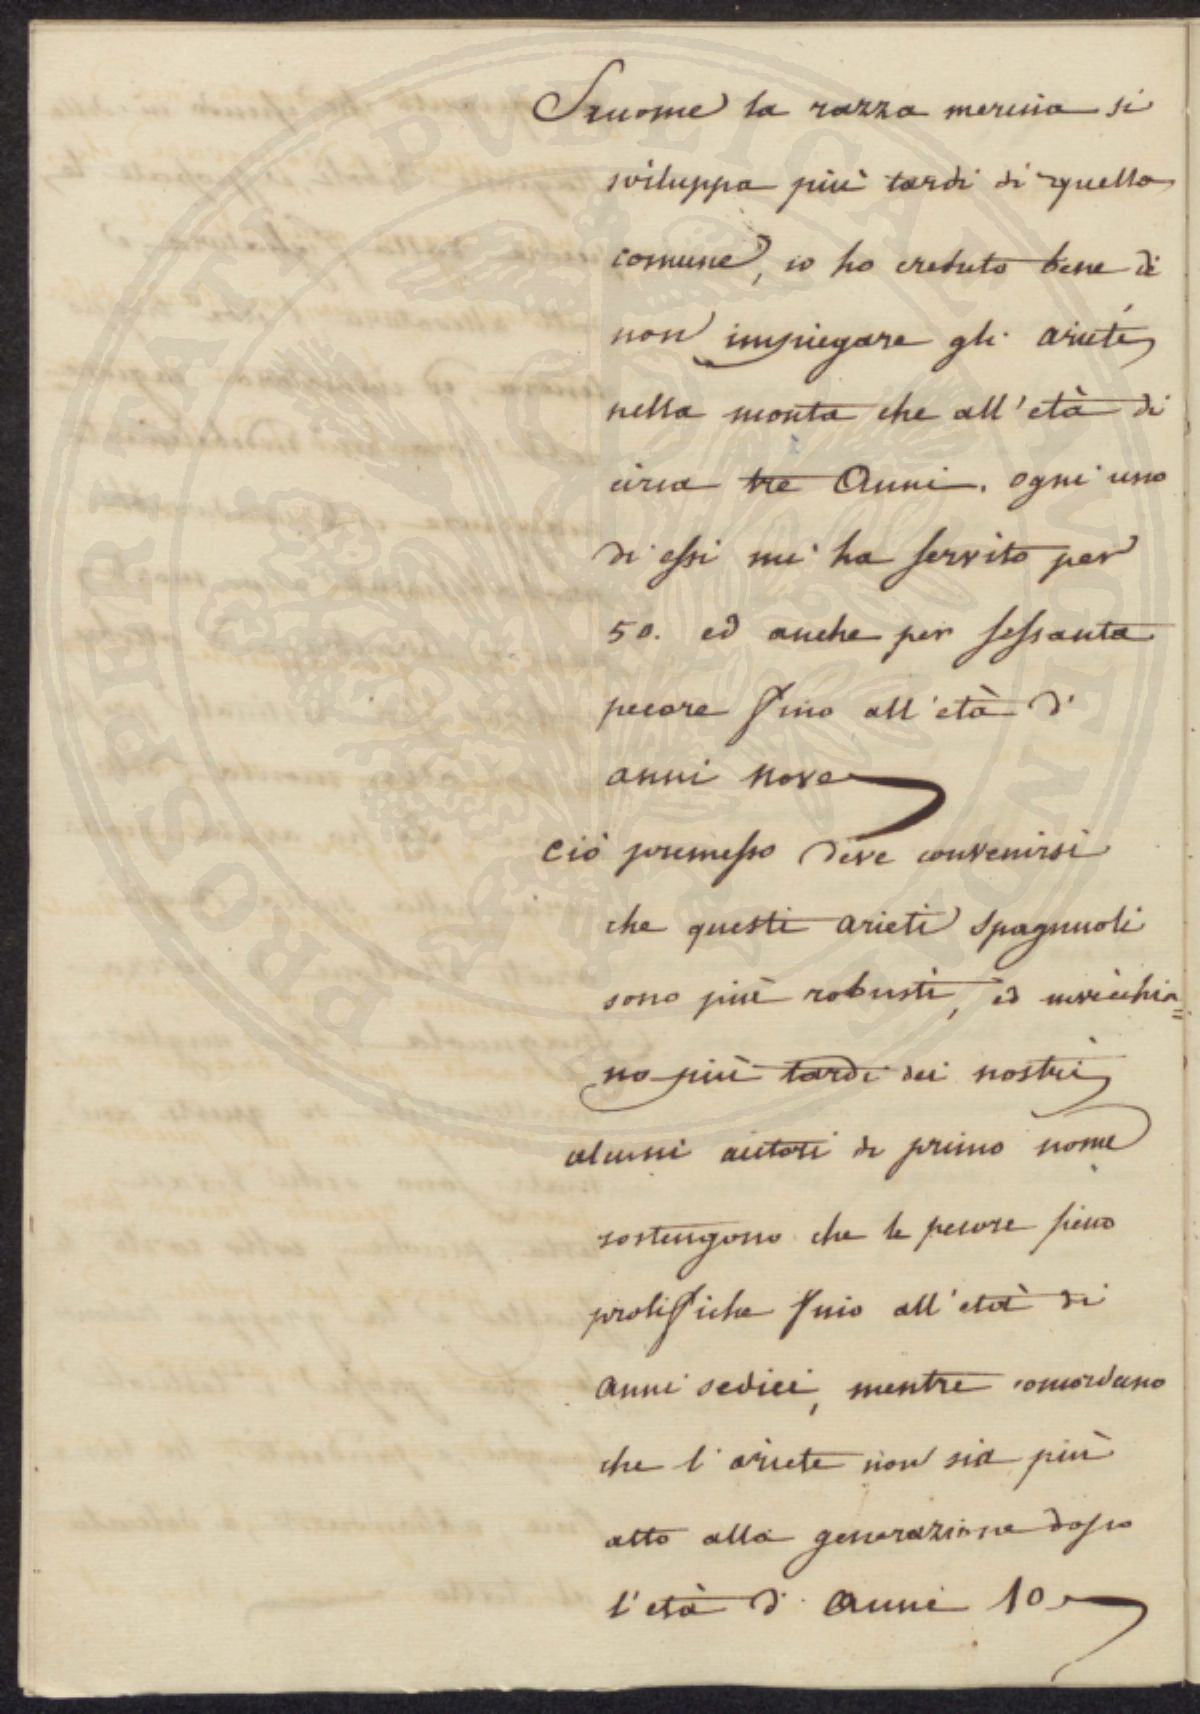 Siccome la razza merina si
sviluppa più tardi di quella
comune, io ho creduto bene di
non impiegare gli arieti
nella monta che all'età di
circa tre Anni. ogni uno
di essi mi ha servito per
50. ed anche per sessanta
pecore fino all'età di
anni nove
Ciò premesso deve convenirsi
che questi arieti spagnuoli
sono più robusti, ed invecchia=
no più tardi dei nostri
alcuni autori di primo nome
sostengono che le pecore sieno
prolifiche fino all'età di
anni sedici, mentre concordano
che l'ariete non sia più
atto alla generazione dopo
l'età di Anni 10
PROSPERITATI PUBLICAE AUGENDAE